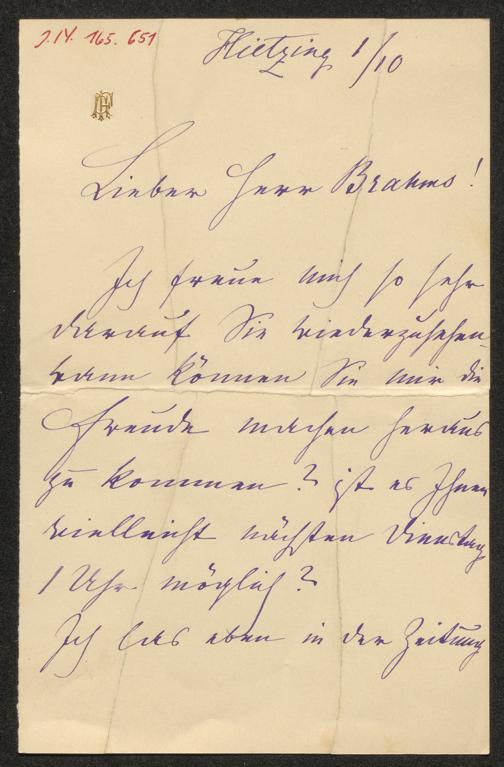 J.N. 165.651
Hietzing 1/10
Lieber Herr Brahms!
Ich freue mich so sehr
darauf Sie wiederzusehen-
wann können Sie mir die
Freude machen heraus
zu kommen? ist es Ihnen
vielleicht nächsten Dienstag
1 Uhr möglich?
Ich las eben in der Zeitung